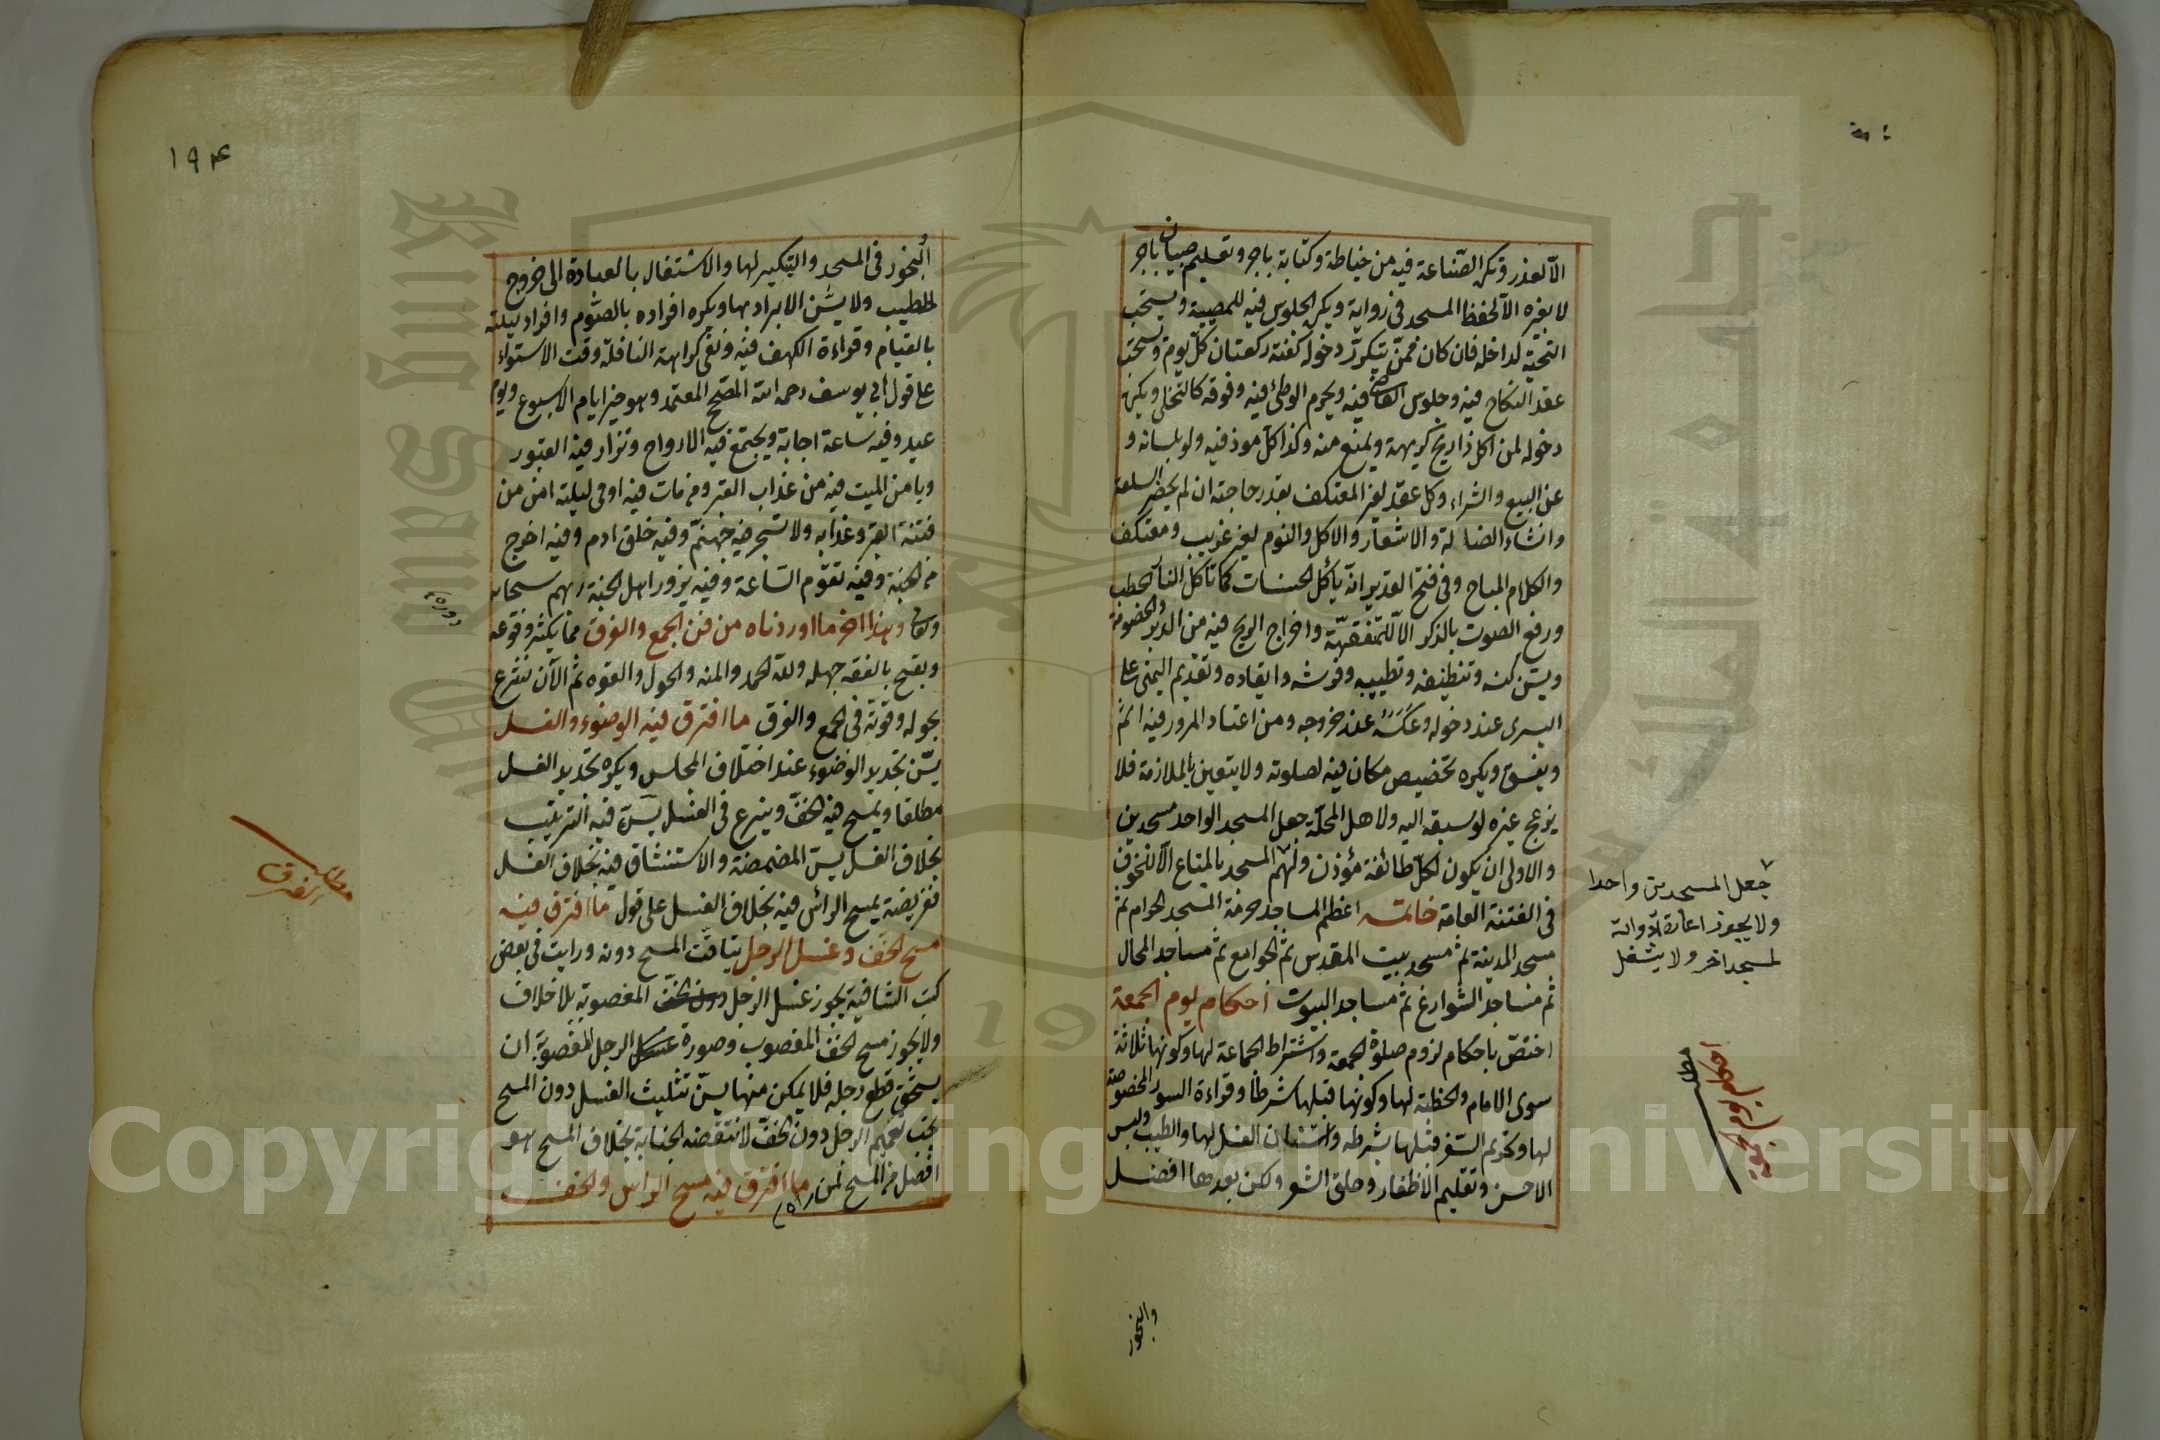 الا لعذر وتكره الصناعة فيه من خياطة وكتابة باجر وتعليم صبيان باجر
لا بغيره الا لحفظ المسجد في رواية ويكره الجلوس فيه للمصيبة ويستحب
التحية لداخله فان كان ممن يتكرر دخوله كفته ركعتان كل يوم ويستحب
عقد النكاح فيه وجلوس القاضي فيه ويحرم الوطئ فيه وفوقه كالتخلي ويكره
دخوله لمن اكل ذا ريح كريهة ويمنع منه وكذا كل موذ فيه ولو بلسانه و
عن البيع والشراء وكل عقد لغير المعتكف بقدر حاجته ان لم يحضر السلعة
وانشاد الضالة والاشعار والاكل والنوم لغير غريب ومعتكف
والكلام المباح وفي فتح القدير انه يأكل الحسنات كما تاكل النار الحطب
ورفع الصوت بالذكر الا للمتفقهة واخراج الريح فيه من الدبر والخصومة
ويسن كنسه وتنظيفه وتطييبه وفرشه وايقاده وتقديم اليمنى على
اليسرى عند دخوله وعكسه عند خروجه ومن اعتاد المرور فيه اثم
ويفسق ويكره تخصيص مكان فيه لصلوته ولا يتعين بالملازمة فلا
يزعج غيره لو سبقه اليه ولاهل المحلة جعل المسجد الواحد مسجدين
والاولى ان يكون لكل طائفة مؤذن ولهم المسجد بالمتاع الا للخوف
في الفتنة العامة خاتمه اعظم المساجد حرمة المسجد الحرام ثم
مسجد المدينة ثم مسجد بيت المقدس ثم الجوامع ثم مساجد المحال
ثم مساجد الشوارع ثم مساجد البيوت احكام يوم الجمعة
اختص باحكام لزوم صلوة الجمعة واشتراط الجماعة لها وكونها ثلاثة
سوى الامام والخطبة لها وكونها قبلها شرطا وقراءة السور المخصوصة
لها وتحريم السفر قبلها بشرطه واستنان الغسل لها والطيب ولبس
الاحسن وتقليم الاظفار وحلق الشعر ولكن بعدها افضل
والبخور
جعل المسجدين واحدا
ولا يجوز اعارة ادواته
لمسجد اخر ولا يشغل
مطلب
احكام يوم الجمعة
١٩٤
البخور في المسجد والتبكير لها والاشتغال بالعبادة الى خروج
الخطيب ولا يسن الابراد بها ويكره افراده بالصوم وافراد ليلته
بالقيام وقراءة الكهف فيه ونفى كراهة النافلة وقت الاستواء
على قول ابي يوسف رحمه الله المصحح المعتمد وهو خير ايام الاسبوع ويوم
عيد وفيه ساعة اجابة ويجتمع فيه الارواح وتزار فيه القبور
ويامن الميت فيه من عذاب القبر ومن مات فيه او في ليلته امن من
فتنة القبر وعذابه ولا تسجر فيه جهنم وفيه خلق ادم وفيه اخرج
من الجنة وفيه تقوم الساعة وفيه يزور اهل الجنة ربهم سبحانه
وتعالى وهذا اخر ما اوردناه من فن الجمع والفرق مما يكثر وقوعه
ويقبح بالفقه جهله ولله الحمد والمنه والحول والقوه ثم الآن نشرع
بحوله وقوته في الجمع والفرق ما افترق فيه الوضوء والغسل
يسن تجديد الوضوء عند اختلاف المجلس ويكره تجديد الغسل
مطلقا ويمسح فيه الخف وينزع في الغسل يسن فيه الترتيب
بخلاف الغسل يسن المضمضة والاستنشاق فيه بخلاف الغسل
ففريضة يمسح الراس فيه بخلاف الغسل على قول ما افترق فيه
مسح الخف وغسل الرجل يتاقت المسح دونه ورايت في بعض
كتب الشافعية يجوز غسل الرجل المغصوبة بلا خلاف
ولا يجوز مسح الخف المغصوب وصورة غسل الرجل المغصوبة ان
يستحق قطع رجله فلا يمكن منها يسن تثليث الغسل دون المسح
يجب تعميم الرجل دون الخف لا تنقضه الجنابة بخلاف المسح هو
افضل من المسح لمن راه ما افترق فيه مسح الراس والخف
مطلب
الفرق
Copyright © King Saud University
King Saud University
1957